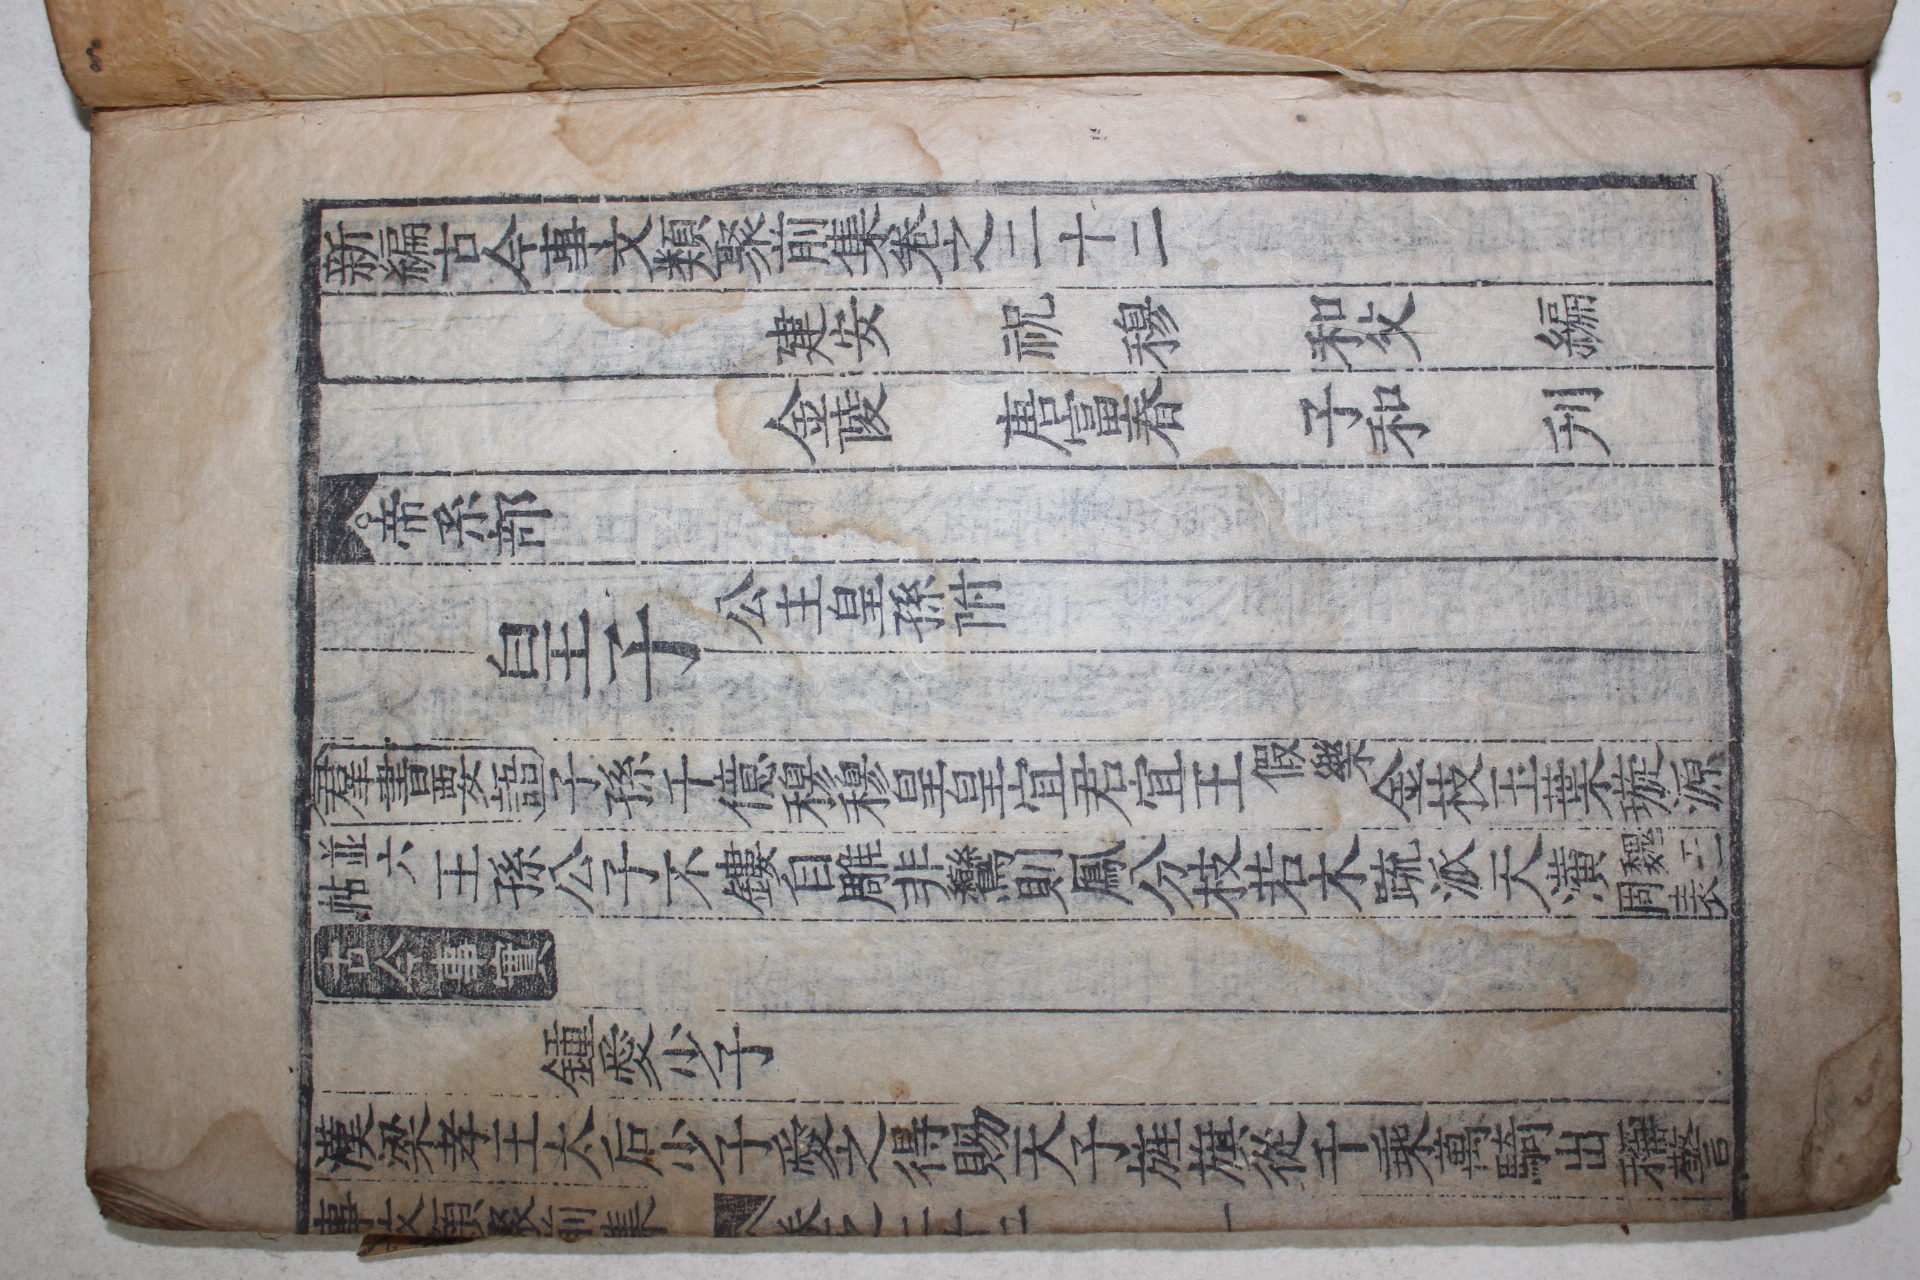 新編古今事文類聚前集卷之二十二
建安 祝 穆 和父 編
金陵 唐富春 子和 刊
帝系部
皇子 公主皇孫附
羣書要語 子孫千億穆穆皇皇宜君宜王 假樂 金枝玉葉璇源
並六帖 王孫公子不鏤自雕非鸞則鳳分枝若木疏派天潢 魏 周表
古今事實
鍾愛少子
漢梁孝王太后少子愛之得賜天子旌旗從千乘萬騎出稱警
事文類聚前集 卷之二十二 一